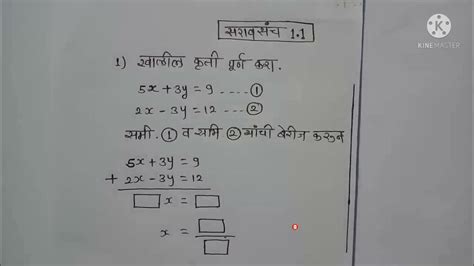 सरावसंच 1.1
KINEMASTER
1) खालील कृती पूर्ण करा.
5x + 3y = 9 ---- ①
2x - 3y = 12 ---- ②
समी. ① व समी ② यांची बेरीज करून
5x + 3y = 9
+ 2x - 3y = 12
□ x = □
x = □
□